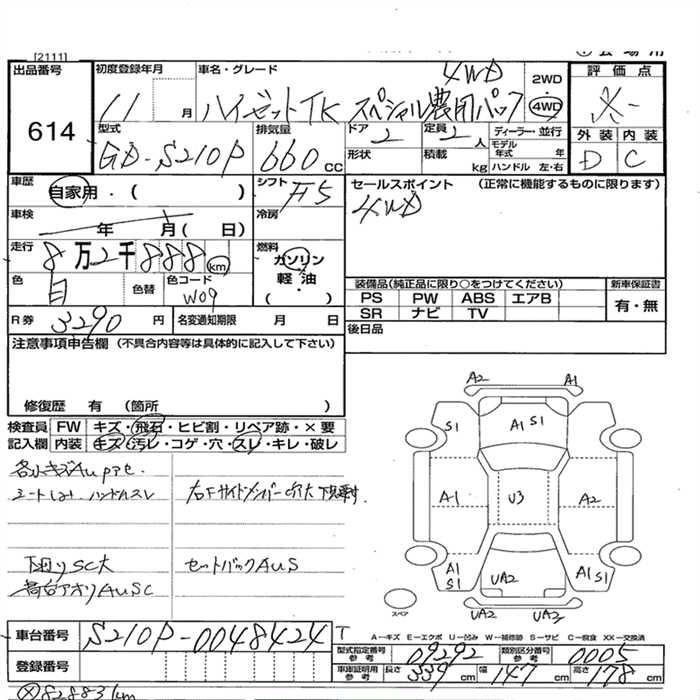 [2111]
出品番号
614
初度登録年月
11 月
車名・グレード
4WD
ハイゼットTK スペシャル農用パック
2WD
4WD
評価点
外装 内装
D C
型式
GD-S210P
排気量
660 cc
ドア
2
定員
2 人
ディーラー・並行
形状
積載
kg
モデル年式 年
ハンドル 左・右
車歴
自家用・( )
シフト
F5
セールスポイント (正常に機能するものに限ります)
4WD
車検
年 月( 日)
冷房
走行
8万2千888 km
燃料
ガソリン
軽・油
( ・ )
色
色替
色コード
W09
装備品(純正品に限り○をつけてください)
新車保証書
PS PW ABS エアB
SR ナビ TV
有・無
R券 3290 円
名変通知期限 月 日
後日品
注意事項申告欄(不具合内容等は具体的に記入して下さい)
修復歴 有 (箇所 )
検査員
記入欄
FW キズ・飛石・ヒビ割・リペア跡・×要
内装 キズ・汚レ・コゲ・穴・スレ・キレ・破レ
シートしみ、ハンドルスレ
右Fサイドメンバー穴大
下回りSC大
セットバックAUS
荷台アオリAUSC
A2
A1
S1
A1 S1
S1
A1
U3
A2
A1
S1
UA2
A1
S1
スペア
UA2
UA2
A―キズ E―エクボ U―凹み W―補修跡 S―サビ C―腐食 XX―交換済
車台番号
S210P-0048424
T
登録番号
型式指定番号
参考
09292
類別区分番号
参考
0005
車庫証明用
参考
長さ 339 cm
幅 147 cm
高さ 178 cm
82883km